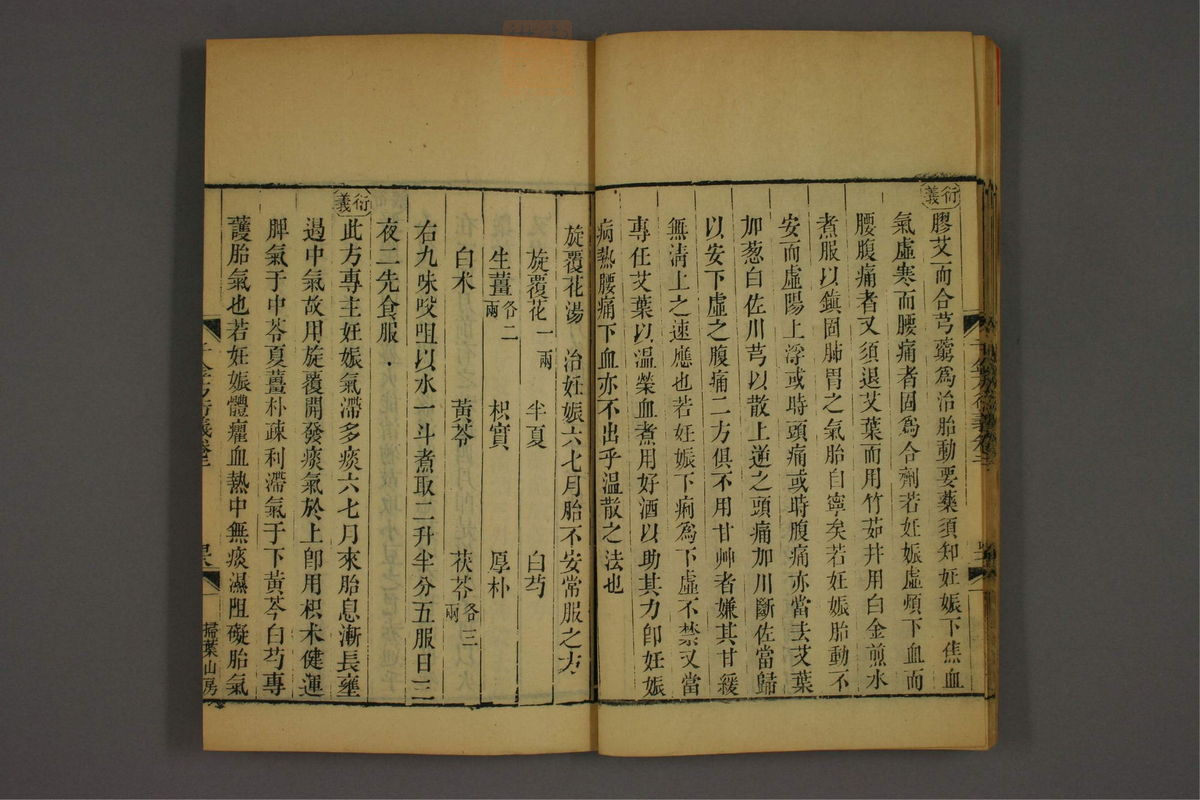 衍義
膠艾而合芎藭為治胎動要藥須知妊娠下焦血
氣虛寒而腰痛者固為合劑若妊娠虛煩下血而
腰腹痛者又須退艾葉而用竹茹井用白金煎水
煮服以鎮固肺胃之氣胎自寧矣若妊娠胎動不
安而虛陽上浮或時頭痛或時腹痛亦當去艾葉
加葱白佐川芎以散上逆之頭痛加川斷佐當歸
以安下虛之腹痛二方俱不用甘艸者嫌其甘緩
無清上之速應也若妊娠下痢為下虛不禁又當
專任艾葉以溫榮血煮用好酒以助其力卽妊娠
病熱腰痛下血亦不出乎溫散之法也
旋覆花湯 治妊娠六七月胎不安常服之方
旋覆花一兩 半夏 白芍
生薑各二兩 枳實 厚朴
白术 黃芩 茯苓各三兩
右九味㕮咀以水一斗煮取二升半分五服日三
夜二先食服
衍義
此方專主妊娠氣滯多痰六七月來胎息漸長壅
遏中氣故用旋覆開發痰氣於上卽用枳术健運
脾氣于中苓夏薑朴疎利滯氣于下黃芩白芍專
護胎氣也若妊娠體癯血熱中無痰濕阻礙胎氣
千金方衍義卷二
掃葉山房